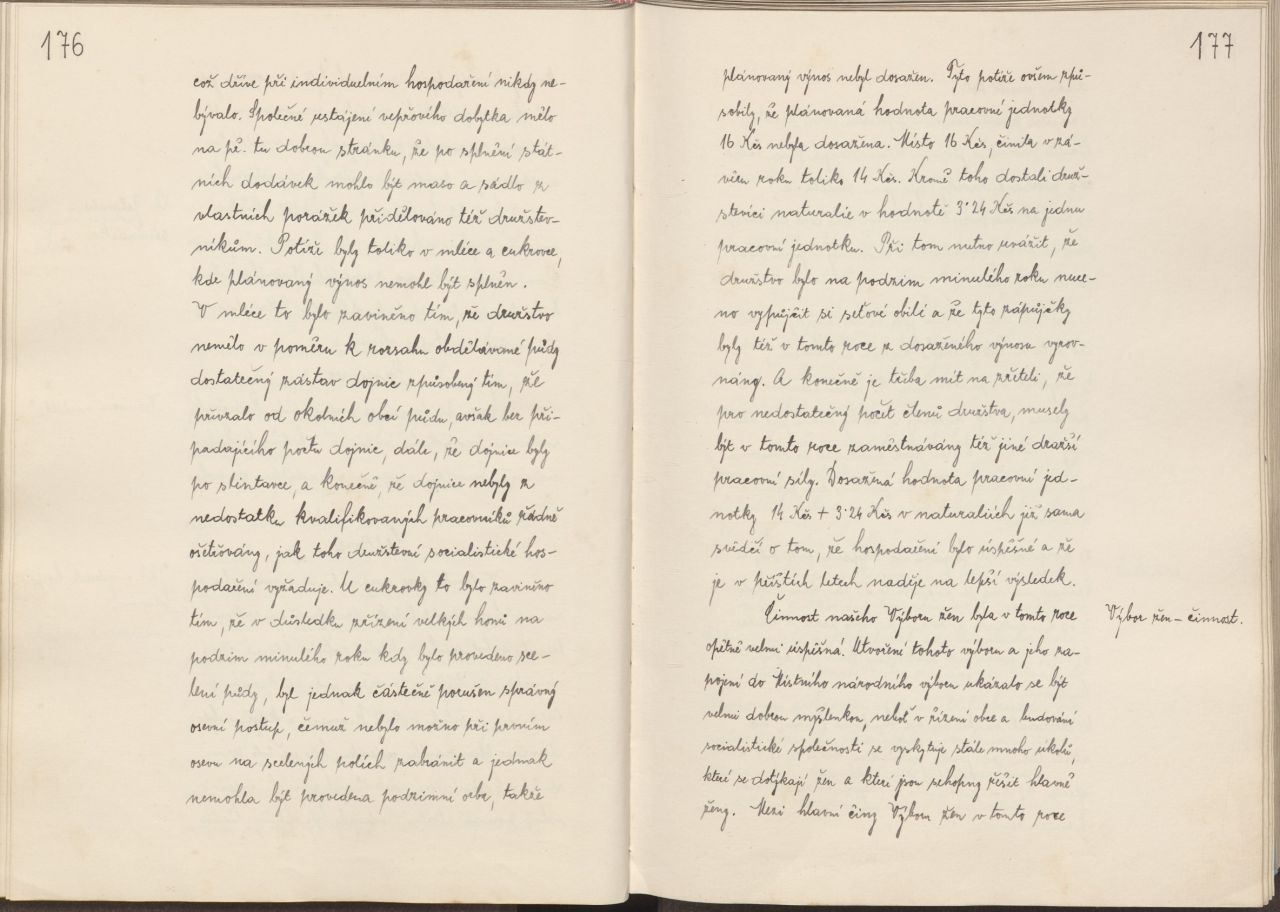 176
což dříve při individuelním hospodaření nikdy ne-
bývalo. Společné ustájení vepřového dobytka mělo
na př. tu dobrou stránku, že po splnění stát-
ních dodávek mohlo být maso a sádlo z
vlastních porážek přidělováno též družstev-
níkům. Potíže byly toliko v mléce a cukrovce,
kde plánovaný výnos nemohl být splněn.
V mléce to bylo zaviněno tím, že družstvo
nemělo v poměru k rozsahu obdělávané půdy
dostatečný zástav dojnic způsobený tím, že
převzalo od okolních obcí půdu, avšak bez při-
padajícího počtu dojnic, dále, že dojnice byly
po slintavce, a konečně, že dojnice nebyly z
nedostatku kvalifikovaných pracovníků řádně
ošetřovány, jak toho družstevní socialistické hos-
podaření vyžaduje. U cukrovky to bylo zaviněno
tím, že v důsledku zřízení velkých honů na
podzim minulého roku kdy bylo provedeno sce-
lení půdy, byl jednak částečně porušen správný
osevní postup, čemuž nebylo možno při prvním
osevu na scelených polích zabránit a jednak
nemohla být provedena podzimní orba, takže
177
plánovaný výnos nebyl dosažen. Tyto potíže ovšem způ-
sobily, že plánovaná hodnota pracovní jednotky
16 Kčs nebyla dosažena. Místo 16 Kčs, činila v zá-
věru roku toliko 14 Kčs. Kromě toho dostali druž-
stevníci naturalie v hodnotě 3·24 Kčs na jednu
pracovní jednotku. Při tom nutno uvážit, že
družstvo bylo na podzim minulého roku nuce-
no vypůjčit si seťové obilí a že tyto zápůjčky
byly též v tomto roce z dosaženého výnosu vyrov-
nány. A konečně je třeba mít na zřeteli, že
pro nedostatečný počet členů družstva, musely
být v tomto roce zaměstnávány též jiné dražší
pracovní síly. Dosažená hodnota pracovní jed-
notky 14 Kčs + 3·24 Kčs v naturaliích již sama
svědčí o tom, že hospodaření bylo úspěšné a že
je v příštích letech naděje na lepší výsledek.
Činnost našeho Výboru žen byla v tomto roce
Výbor žen – činnost.
opětně velmi úspěšná. Utvoření tohoto výboru a jeho za-
pojení do Místního národního výboru ukázalo se být
velmi dobrou myšlenkou, neboť v řízení obce a budování
socialistické společnosti se vyskytuje stále mnoho úkolů,
které se dotýkají žen a které jsou schopny řešit hlavně
ženy. Mezi hlavní činy Výboru žen v tomto roce